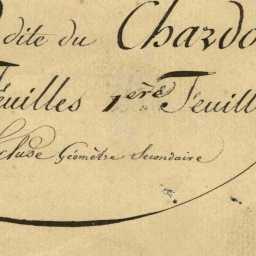 dite du Chardo
Feuilles 1ère Feuill
Ecluse Géomètre Secondaire